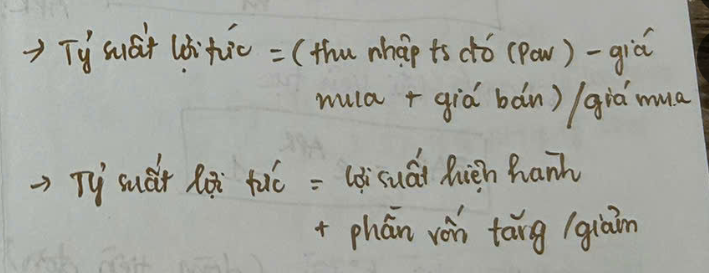 → Tỷ suất lợi tức = (thu nhập ts đó (Paw) - giá
mua + giá bán) / giá mua
→ Tỷ suất lợi tức = lợi suất hiện hành
+ phần vốn tăng / giảm